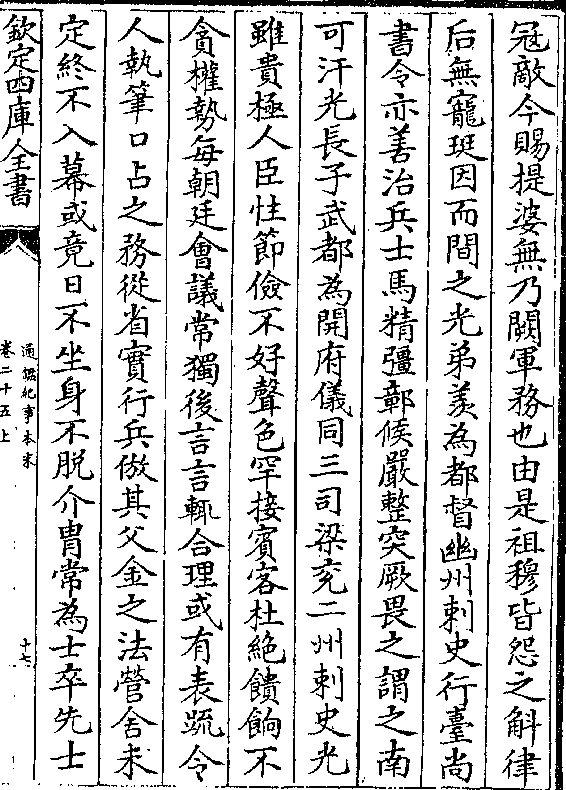 冦敵今賜提婆無乃闕軍務也由是祖穆皆怨之斛律
后無寵珽因而間之光弟羨為都督幽州刺史行臺尚
書令亦善治兵士馬精彊鄣候嚴整突厥畏之謂之南
可汗光長子武都為開府儀同三司梁兖二州刺史光
雖貴極人臣性節儉不好聲色罕接賓客杜絶饋餉不
貪權勢每朝廷會議常獨後言言輒合理或有表疏令
人執筆口占之務從省實行兵倣其父金之法營舍未
定終不入幕或竟日不坐身不脱介胄常為士卒先士
欽定四庫全書
通鑑紀事本末
卷二十五上
十七